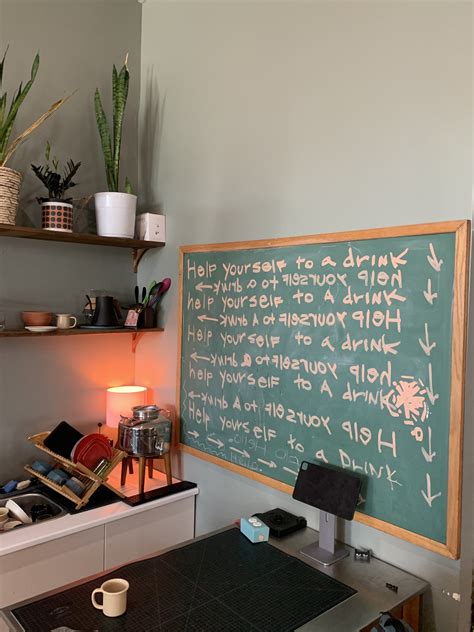 Help yourself to a drink
Help yourself to a drink
help yourself to A drink
Help yourself to a drink
Help yourself to a drink
help yourself to a drink
help yourself to A drink
Help yourself to A drink
Help yourself to a Drink
Help